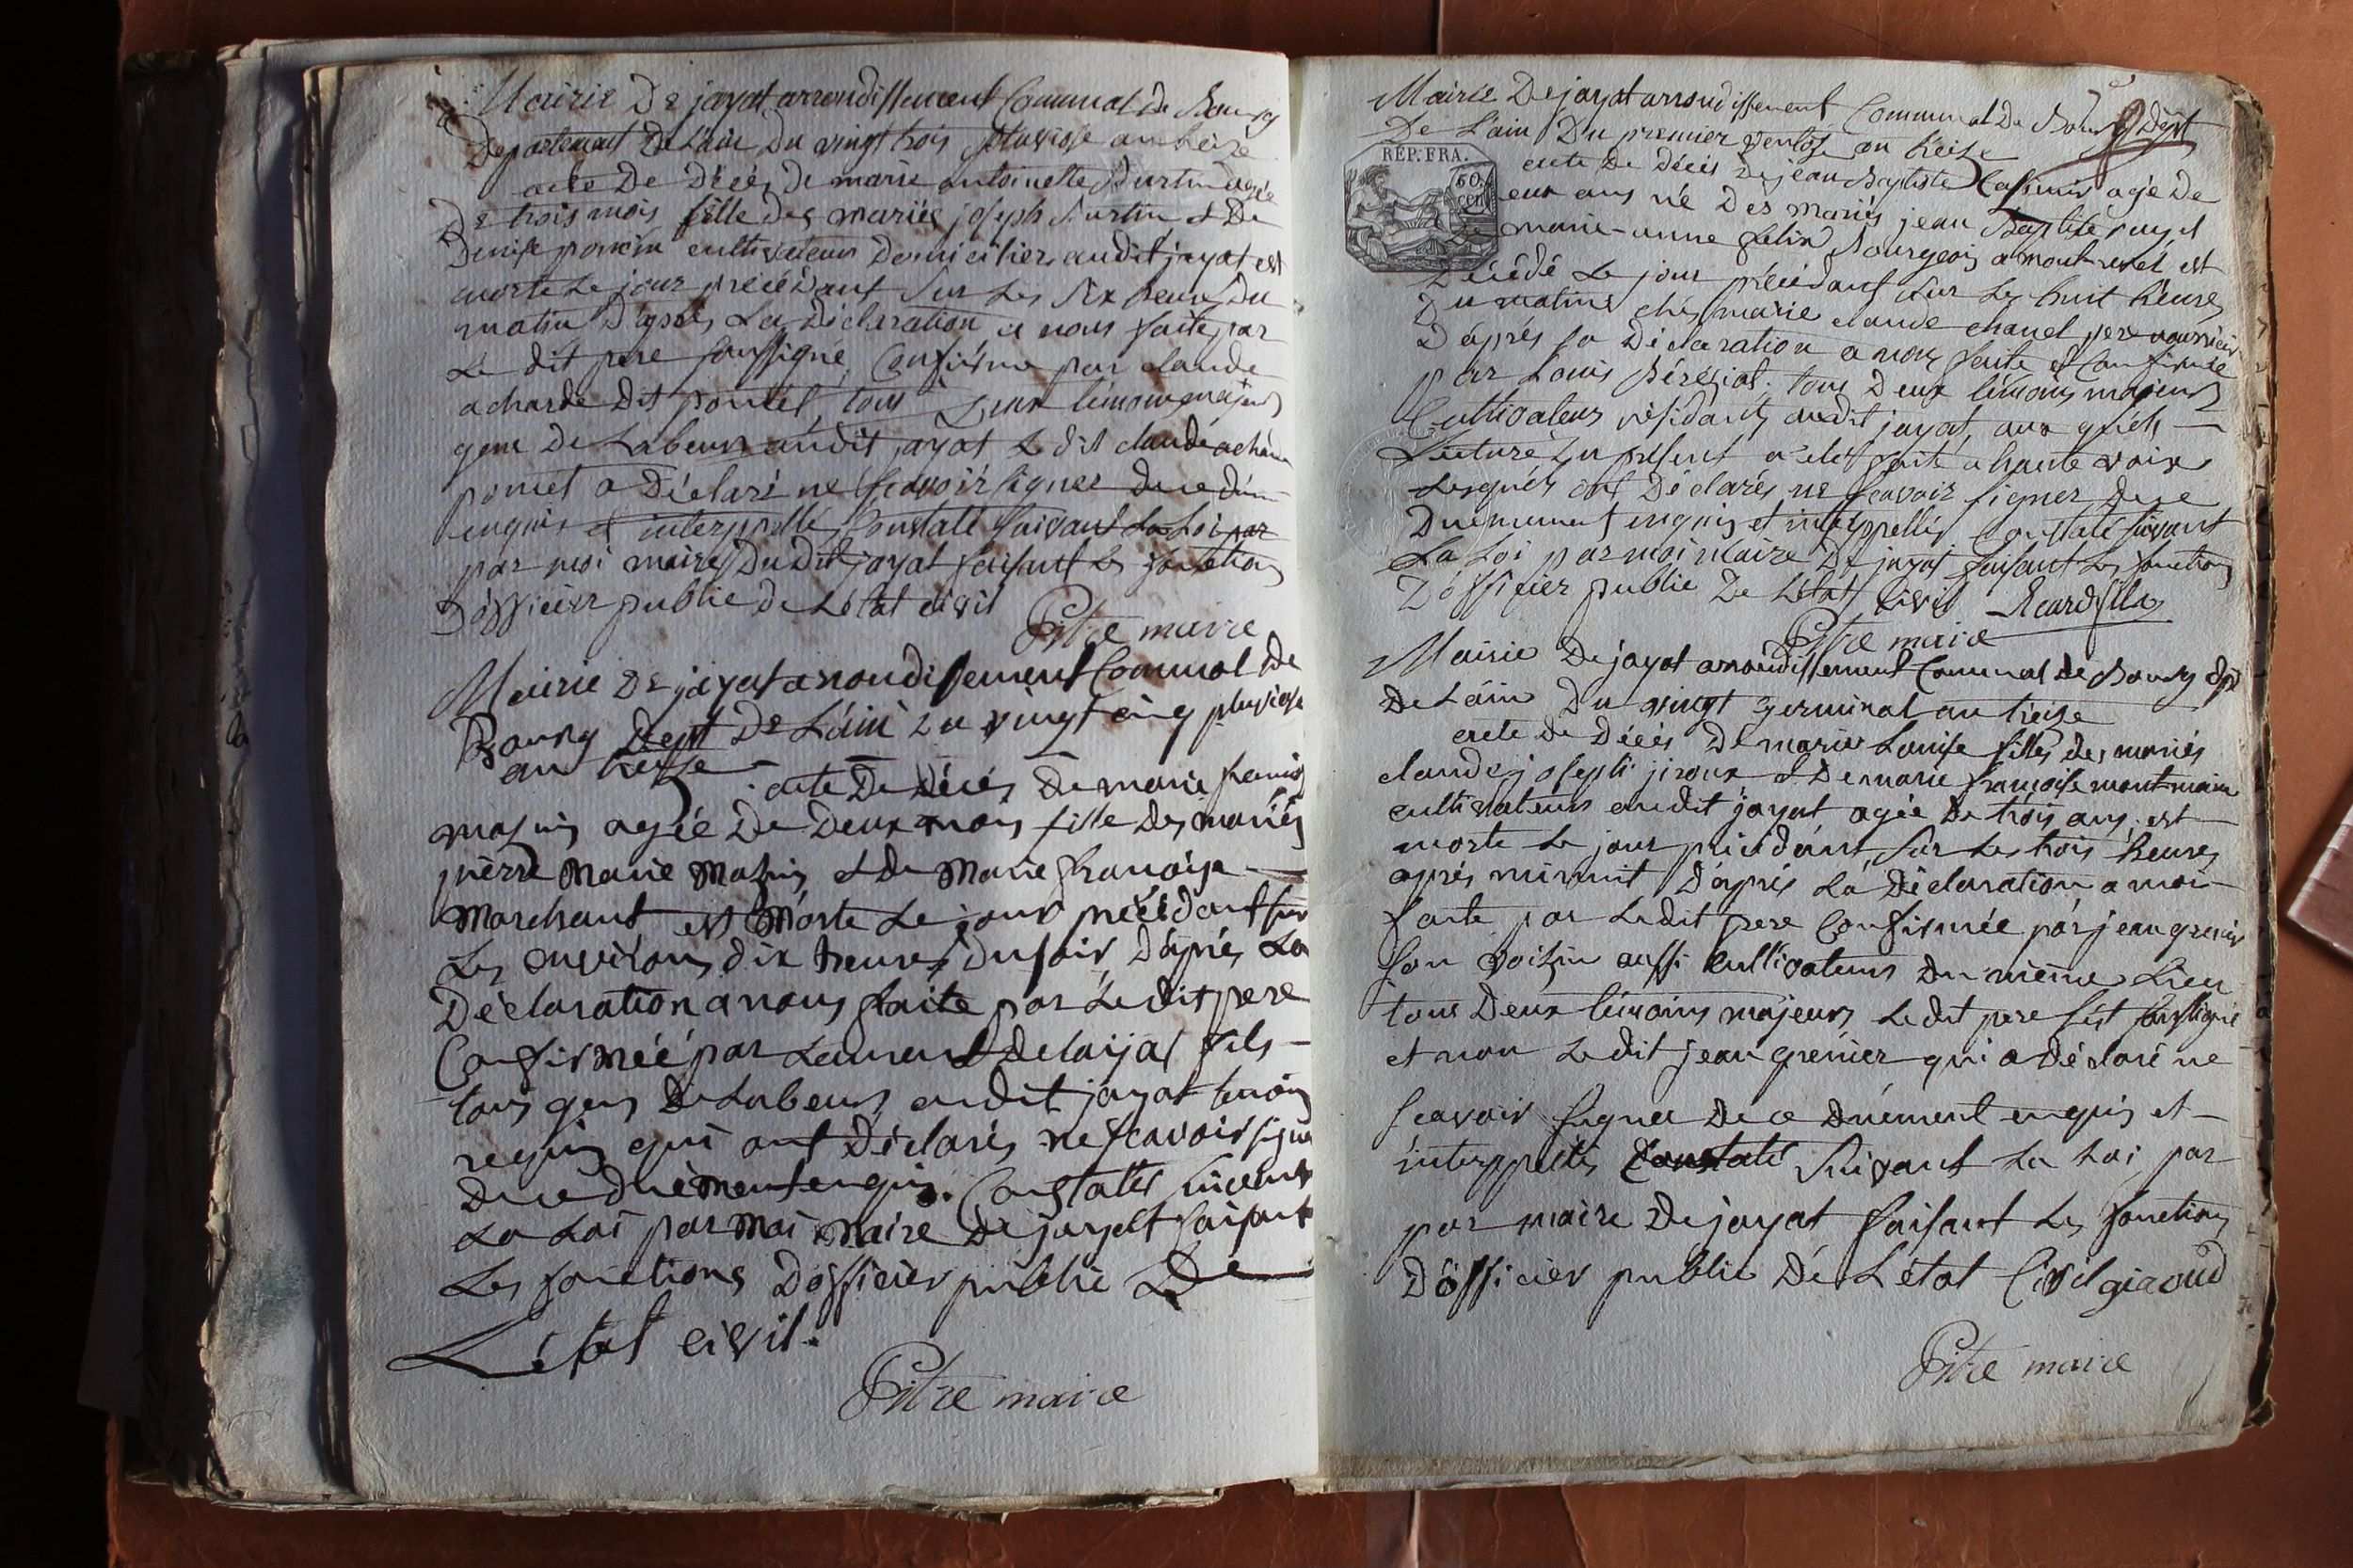 Mairie De jayat arrondissement Communal de Bourg
Departement De L'ain Du vingt trois pluviose an treize
acte De Décés De marie antoinette Surtin agée
De trois mois fille des mariés joseph Surtin & De
Denise poncin cultivateurs Domiciliers audit jayat est
morte Le jour précédant sur Les six heures Du
matin D'aprés La Déclaration a nous faite par
Le dit pere soussigné, Confirme par Claude
acharde Dit poncet, tous Deux témoins majeurs
gens De Labeurs audit jayat Le dit claude
poncet a Déclaré ne scavoir signer de ce
enquis et interppellé, Constaté suivant La Loi par
par moi maire Du dit jayat faisant Les fonctions
D'officier public De L'état civil
Pitre maire
Mairie De jayat arrondissement Communal De
Bourg Dept De L'ain Du vingt cinq pluviose
an treize
acte De Décés De marie
agée De Deux mois fille Des mariés
pierre Marie & De Marie françoise
Marchant est Morte Le jour précédant sur
Les environs dix heures du soir D'aprés La
Déclaration a nous faite par Le dit pere
Confirmée par Laurent Delaijat fils
tous gens De Labeurs audit jayat témoins
requis qui ont Déclarés ne scavoir signer
De ce duement enquis. Constatés suivant
La Loi par Moi Maire De jayat faisant
Les fonctions D'officier public De
L'état civil.
Pitre maire
Mairie De jayat arrondissement Communal De Bourg Dept
De L'ain Du premier ventose an treize
RÉP. FRA.
50
cen
acte De Décés De jean Baptiste Casimir agé De
eux ans né Des mariés jean Baptiste
marie-anne felix Bourgeois a montrevel est
Décédé Le jour précédant sur Les huit heures
Du matin chés marie claude chanel pere nourricier
D'aprés sa Déclaration a nous faite et Confirmée
par Louis tous Deux témoins majeurs
Cultivateurs résidants audit jayat, aux quels
Lecture Du présent acte faite a haute voix
Lesquels ont Déclarés ne scavoir signer De ce
Duemement enquis et interppellés Constaté suivant
La Loi par moi Maire De jayat faisant Les fonctions
D'officier public De L'état Civil
Pitre maire
Mairie De jayat arrondissement Communal De Bourg Dpt
De L'ain Du vingt germinal an treize
acte De Décés De marie Louise fille des mariés
claude joseph jiroux & De marie françoise montmain
cultivateurs audit jayat agée De trois ans, est
morte Le jour précédant, sur Les trois heures
aprés minuit D'aprés La Déclaration a moi
faite par Le dit pere Confirmée par jean grenier
son voisin aussi Cultivateurs Du même Lieu
tous Deux témoins majeurs Le dit pere s'est soussigné
et non Le dit jean grenier qui a Déclaré ne
scavoir signer De ce Duement enquis et
interppellés Constaté suivant La Loi par
par maire De jayat faisant Les fonctions
D'officier public De L'état Civil giroud
Pitre maire